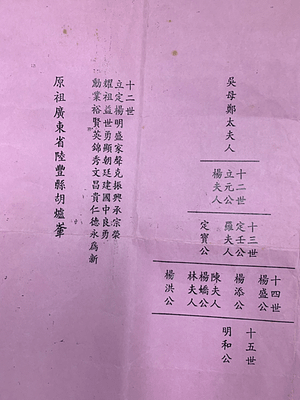 吳母鄭太夫人
十二世
立元公
楊夫人
十三世
定壬公
羅夫人
定寶公
十四世
楊盛公
楊添公
陳夫人
楊嬌公
林夫人
楊洪公
十五世
明和公
十二世
立定楊明盛家聲克振興承宗榮
耀祖益世勇顯朝廷建國中良勇
勳業裕賢英錦秀文昌貴仁德永爲新
原祖廣東省陸豐縣胡爐輋